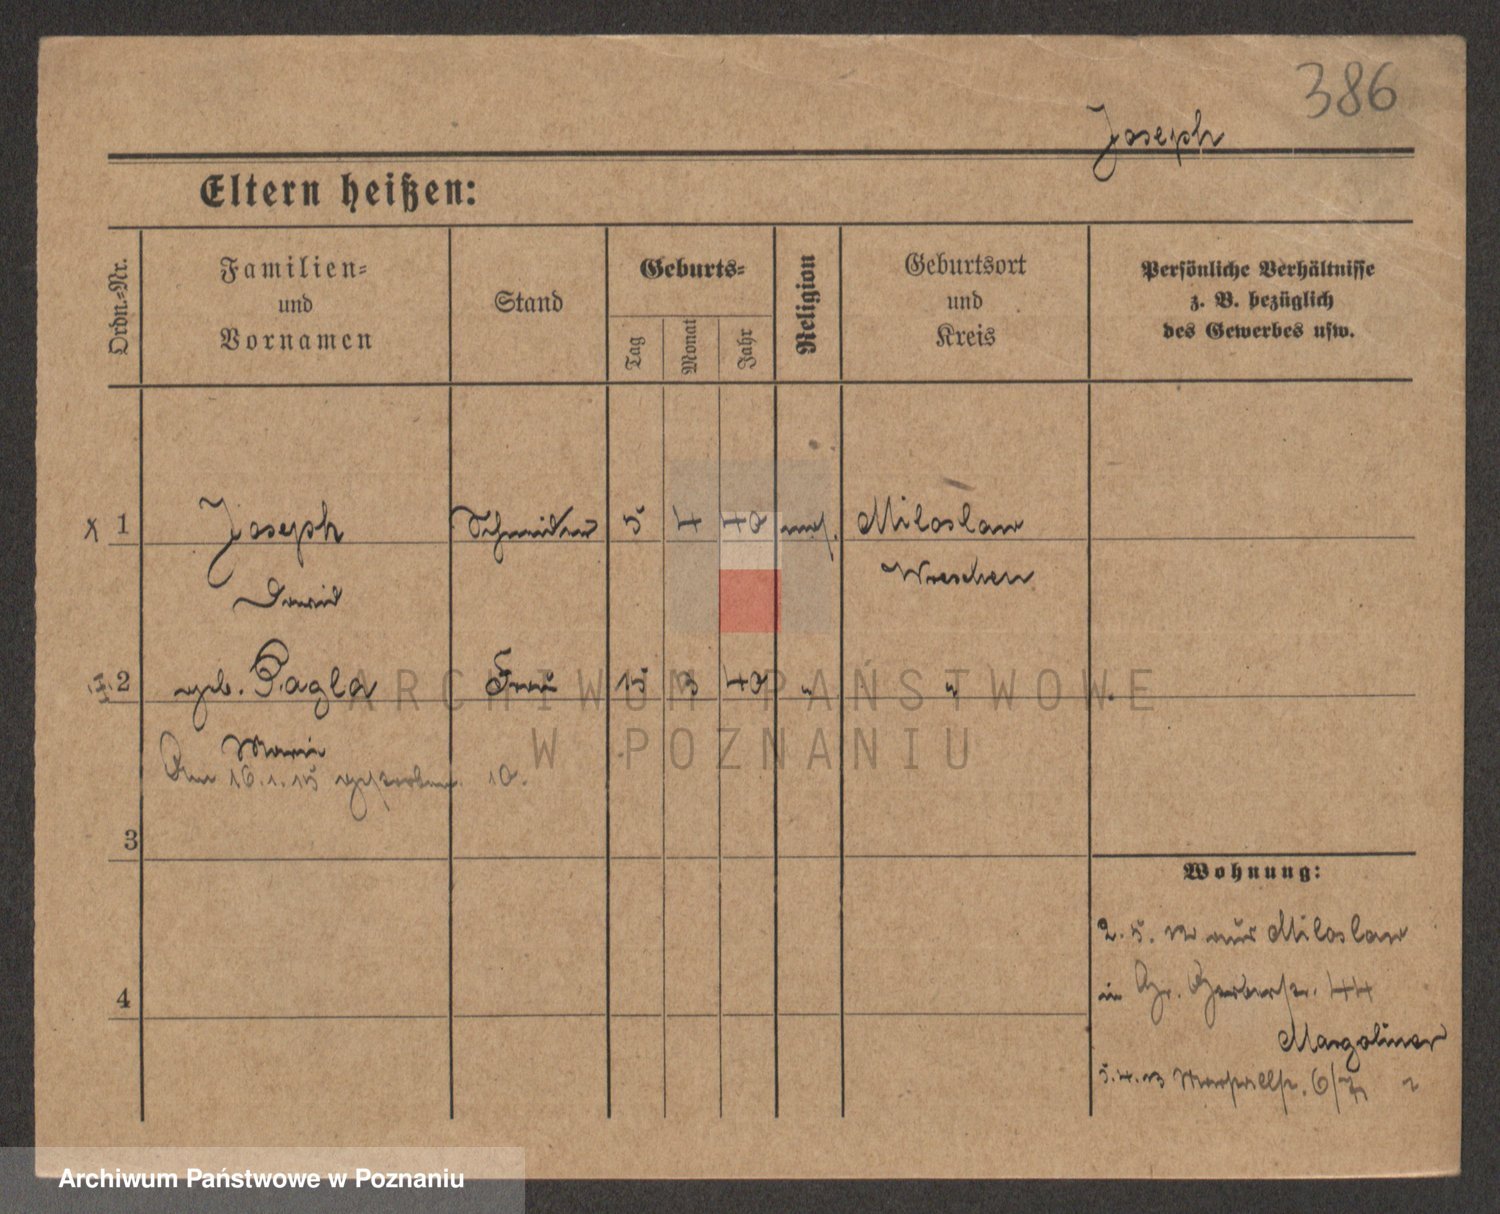 386
Joseph
Eltern heißen:
Ordn.-Nr.
Familien-
und
Vornamen
Stand
Geburts-
Tag
Monat
Jahr
Religion
Geburtsort
und
Kreis
Persönliche Verhältnisse
z. B. bezüglich
des Gewerbes usw.
x 1 Joseph Schneider 5 4 42 mos. Miloslaw
David Wreschen
2 geb. Pagla Frau 15 3 42 " "
Marie
Am 16.1.15 gestorben.
3
4
Wohnung:
2.5.12 aus Miloslaw
in Gr. Gerberstr. 44
Margoliner
5.4.13
ARCHIWUM PAŃSTWOWE
W POZNANIU
Archiwum Państwowe w Poznaniu